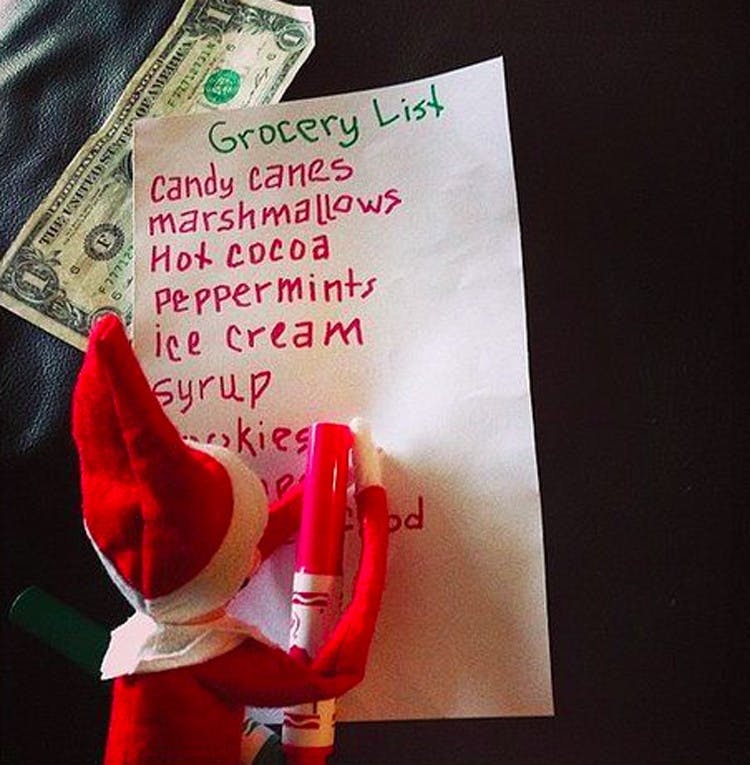 THE UNITED STATES OF AMERICA
1
1
Grocery List
candy canes
marshmallows
Hot cocoa
peppermints
ice cream
syrup